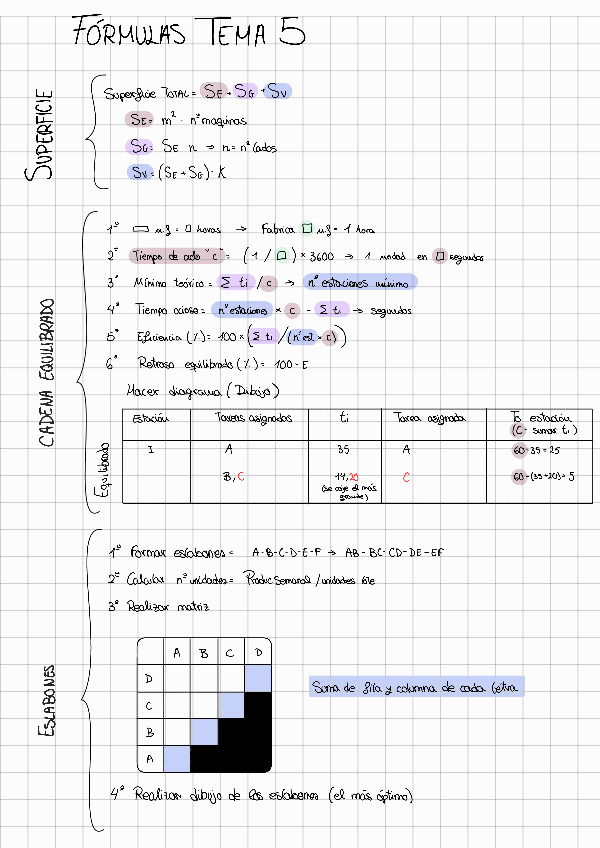 FÓRMULAS TEMA 5
SUPERFICIE
Superficie TOTAL = SE + SG + SV
SE = m² · nº maquinas
SG = SE · n → n = nº lados
SV = (SE + SG) · K
CADENA EQUILIBRADO
1º ▭ u.f = ▯ horas → Fabrica □ u.f = 1 hora
2º Tiempo de ciclo "c" = (1 / □) × 3600 → 1 unidad en □ segundos
3º Mínimo teórico = Σ ti / c → nº estaciones mínimo
4º Tiempo ocioso = nº estaciones × c - Σ ti → segundos
5º Eficiencia (%) = 100 × (Σ ti / (nº est × c))
6º Retraso equilibrado (%) = 100 - E
Hacer diagrama (Dibujo)
Equilibrado
Estación Tareas asignadas ti Tarea asignada To estación
(C - sumas ti)
I A 35 A 60 - 35 = 25
B, C 14, 20 C 60 - (35+20) = 5
(se coje el más
grande)
ESLABONES
1º Formar eslabones = A-B-C-D-E-F → AB-BC-CD-DE-EF
2º Calcular nº unidades = Produc Semanal / unidades lote
3º Realizar matriz
A B C D
D
C
B
A
Suma de fila y columna de cada letra
4º Realizar dibujo de los eslabones (el más óptimo)